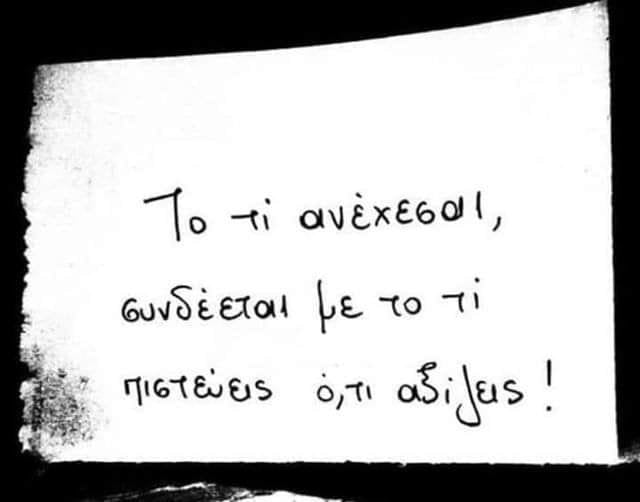 Το τι ανέχεσαι,
συνδέεται με το τι
πιστεύεις ό,τι αξίζεις!